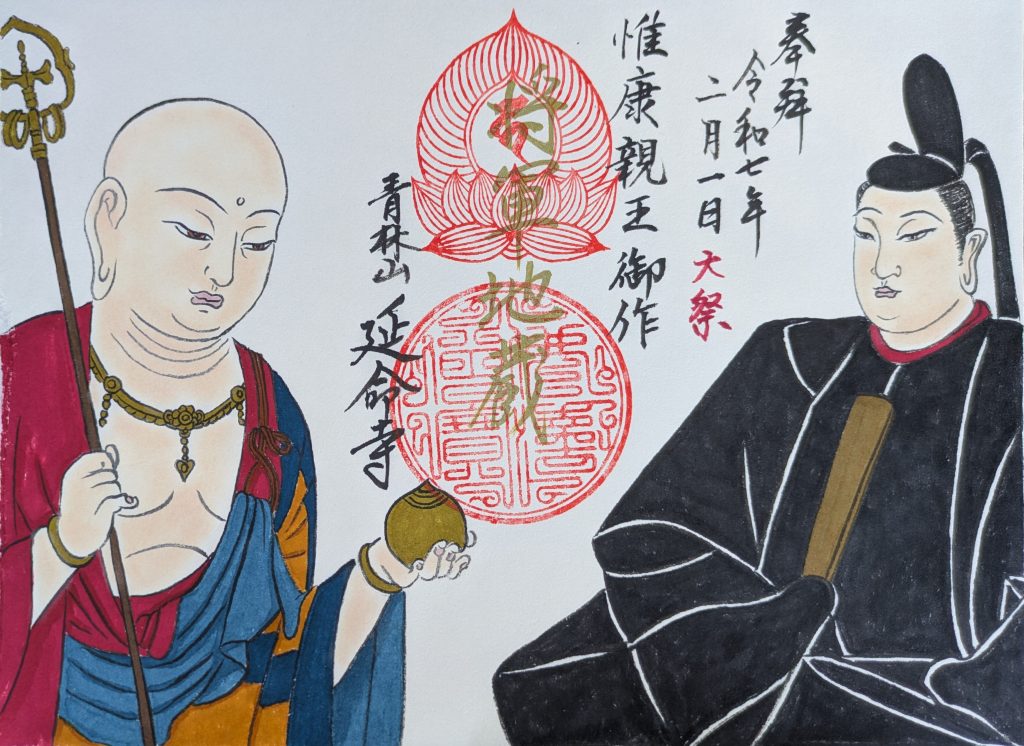 奉拜
令和七年
二月一日
大祭
惟康親王御作
将軍地蔵
青林山
延命寺